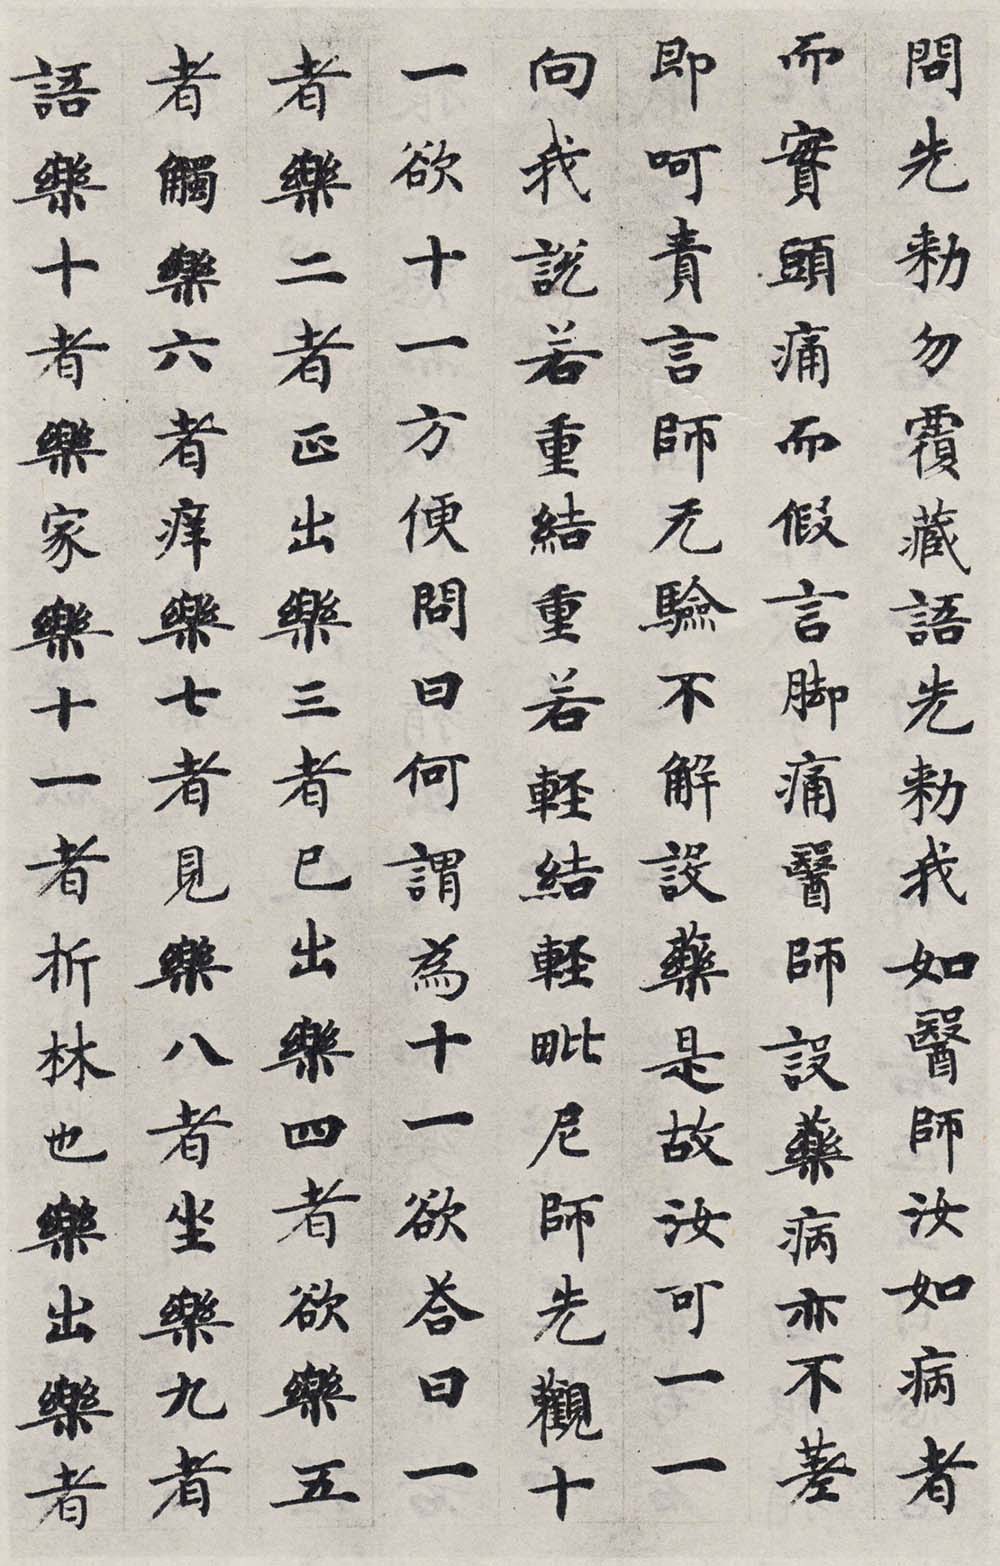 問先勑勿覆藏語先勑我如醫師汝如病者
而實頭痛而假言脚痛醫師設藥病亦不差
即呵責言師无驗不解設藥是故汝可一一
向我説若重結重若輕結輕毗尼師先觀十
一欲十一方便問曰何謂為十一欲荅曰一
者樂二者正出樂三者已出樂四者欲樂五
者觸樂六者痒樂七者見樂八者坐樂九者
語樂十者樂家樂十一者折林也樂出樂者